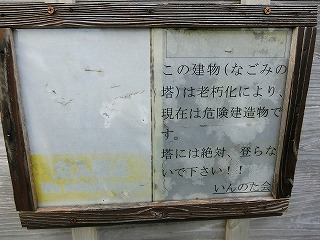 この建物(なごみの
塔)は老朽化により、
現在は危険建造物で
す。
塔には絶対、登らな
いで下さい！！
いんのた会